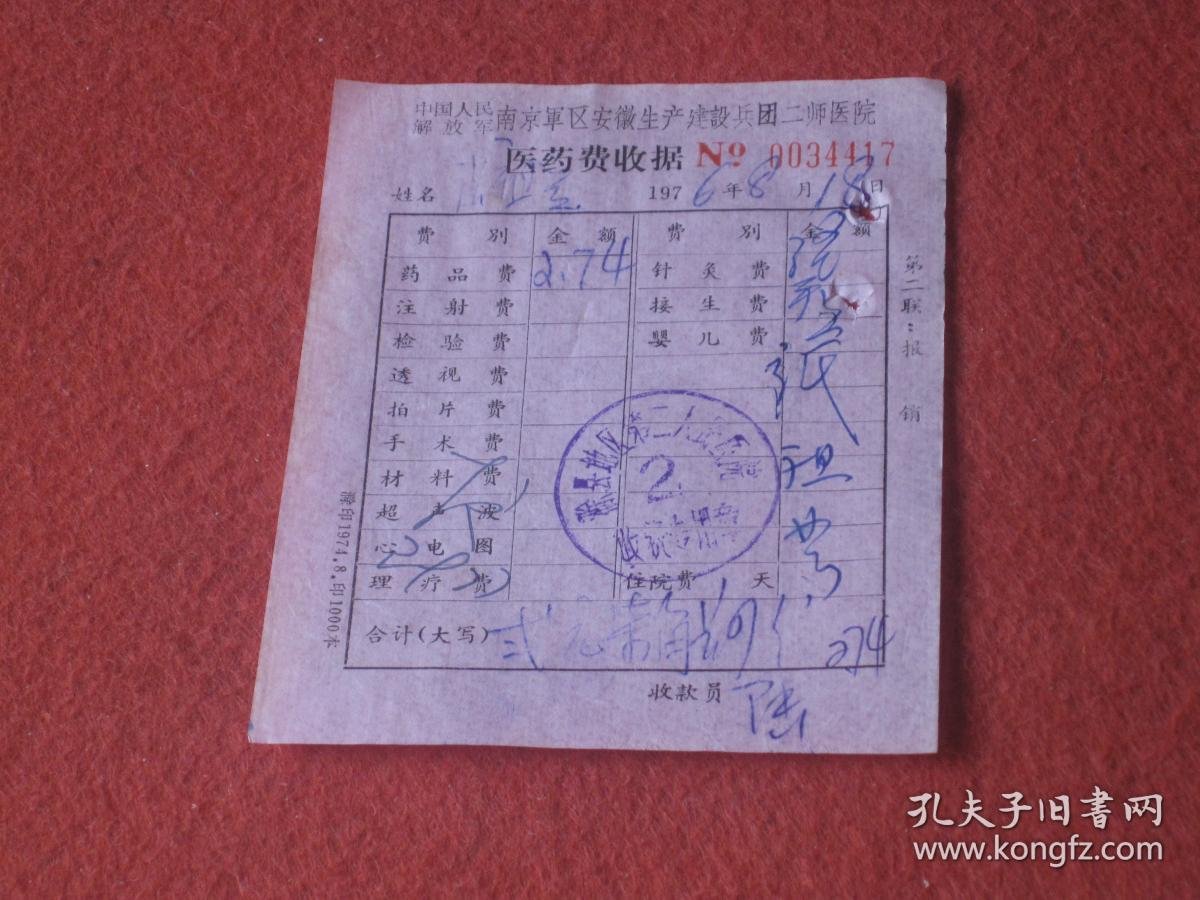 中国人民解放军南京軍区安徽生产建設兵团二师医院
医药费收据 № 0034417
姓名 1976年8月18日
费别 金额 费别 金额
药品费 2.74 针灸费
注射费 接生费
检验费 婴儿费
透视费
拍片费
手术费
材料费
超声波
心电图
理疗费 住院费 天
合计(大写) 弍元柒角 274
收款员 陆
第二联:报销
滁印1974.8.印1000本
第二人民医院
2
孔夫子旧書网
www.kongfz.com